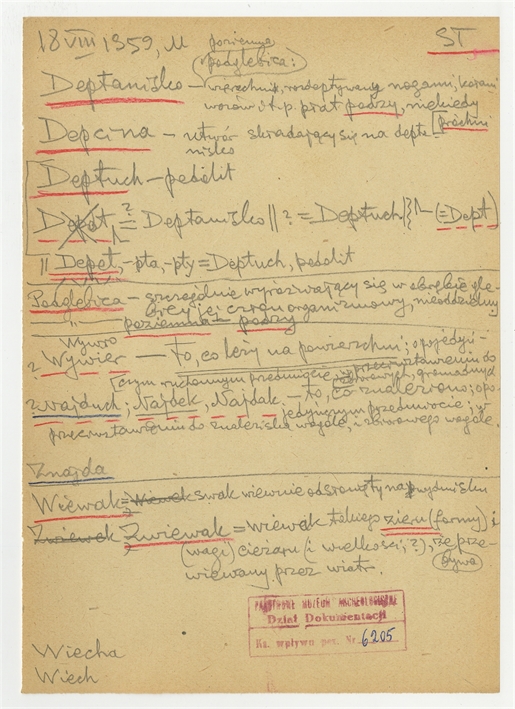 18 VIII 1959, M poziemya ST
podglebica:
Deptanisko – wierzchnie, rozdeptywany nogami, kołami
wozów i t.p. prat podzy, niekiedy
próchni
Depcina – utwór składający się na depta
nisko
Deptuch – pedolit
Depat ? = Deptanisko || ? = Deptuch (= Dept)
|| Depet, -pta, -pty = Deptuch, pedolit
Podglebica – szczególnie wyróżniający się w obrębie gle-
by jej człon organizmowy, nieoddzielny
" poziemna – podzy
Wywro
2 Wywier – to, co leży na powierzchni; opojedyń-
czym ruchomym przedmiocie, w przeciwstawieniu do
gromadnych
znajduch, Najdek, Najdak – to, co znaleziono; o po-
jedynczym przedmiocie, w
przeciwstawieniu do znaleziska wogóle, i zbiorowego wogóle.
Znajda
Wiewak = Wiewek swak wiewnie odsłonięty na wydmisku
Zwiewek Zwiewak = wiewak takiego zieru (formy) i
(wagi) ciężaru (i wielkości, ?), że prze-
bywa
wiewany przez wiatr.
PAŃSTWOWE MUZEUM ARCHEOLOGICZNE
Dział Dokumentacji
Ks. wpływu poz. Nr. 6205
Wiecha
Wiech